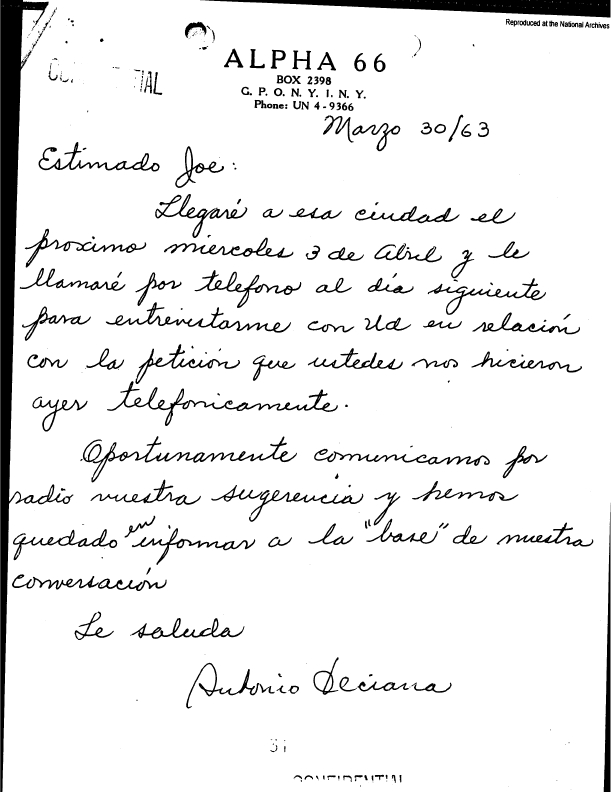 Reproduced at the National Archives
CONFIDENTIAL
ALPHA 66
BOX 2398
G. P. O. N. Y. 1. N. Y.
Phone: UN 4-9366
Marzo 30/63
Estimado Joe:
Llegaré a esa ciudad el
proximo miercoles 3 de Abril y le
llamaré por telefono al día siguiente
para entrevistarme con Ud en relación
con la petición que ustedes nos hicieron
ayer telefonicamente.
Oportunamente comunicamos por
radio vuestra sugerencia y hemos
quedado en informar a la "base" de nuestra
conversación
Le saluda
Antonio Veciana
31
CONFIDENTIAL